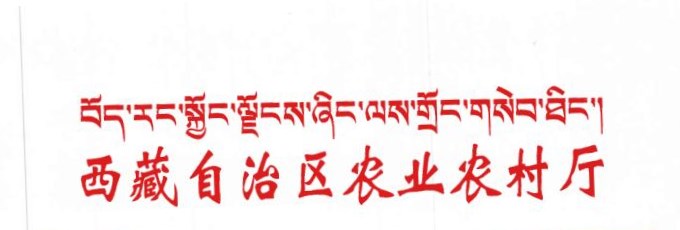 བོད་རང་སྐྱོང་ལྗོངས་ཞིང་ལས་གྲོང་གསེབ་ཐིང་།
西藏自治区农业农村厅